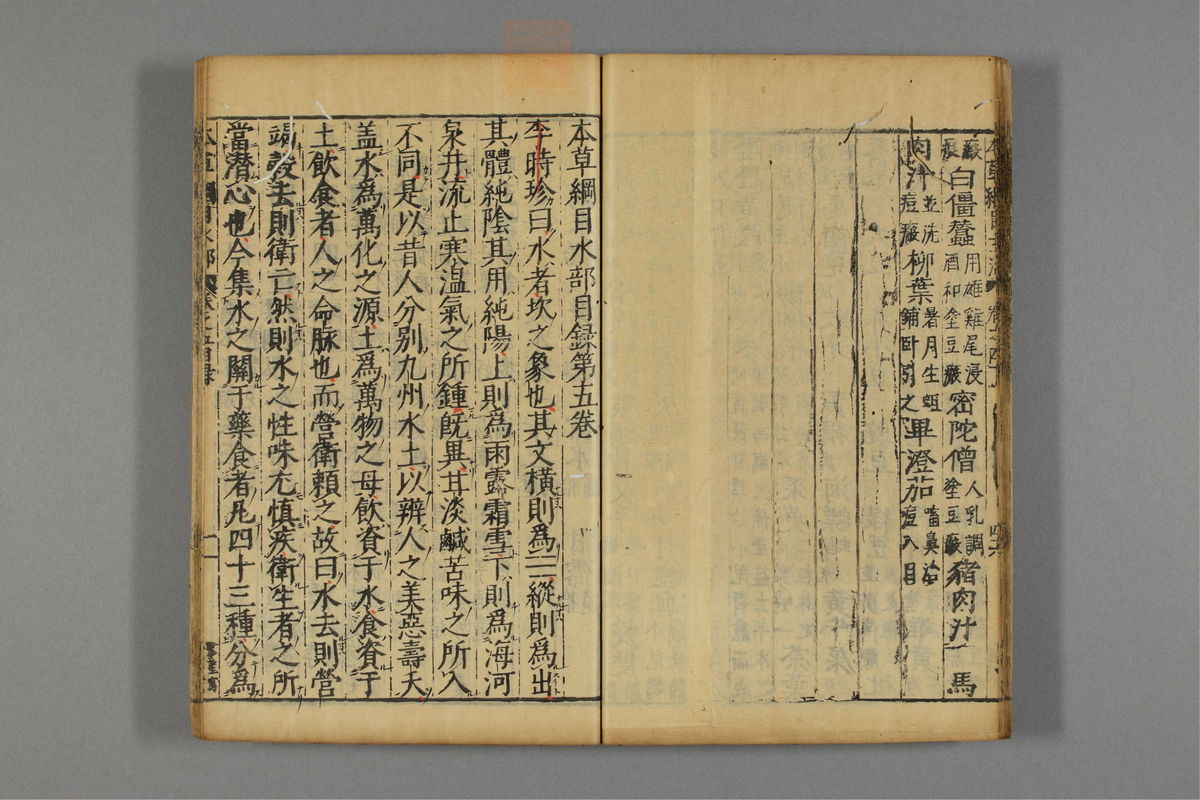 瘢白僵蠶用雄雞尾浸酒和塗豆瘢密陀僧人乳調塗豆瘢豬肉汁 馬
肉汁並洗痘瘢柳葉暑月生蛆鋪卧引之畢澄茄㗜鼻治痘入目
本草綱目水部目録第五卷
李時珍曰水者坎之象也其文橫則爲三縱則爲出
其體純陰其用純陽上則爲雨露霜雪下則爲海河
泉井流止寒温氣之所鍾旣異甘淡鹹苦味之所入
不同是以昔人分别九州水土以辨人之美惡壽夭
盖水爲萬化之源土爲萬物之母飲資于水食資于
土飲食者人之命脉也而營衛頼之故曰水去則營
竭穀去則衛亡然則水之性味尤慎疾衛生者之所
當潜心也今集水之關于藥食者凡四十三種分爲
本草綱目水部 卷之五目録 一